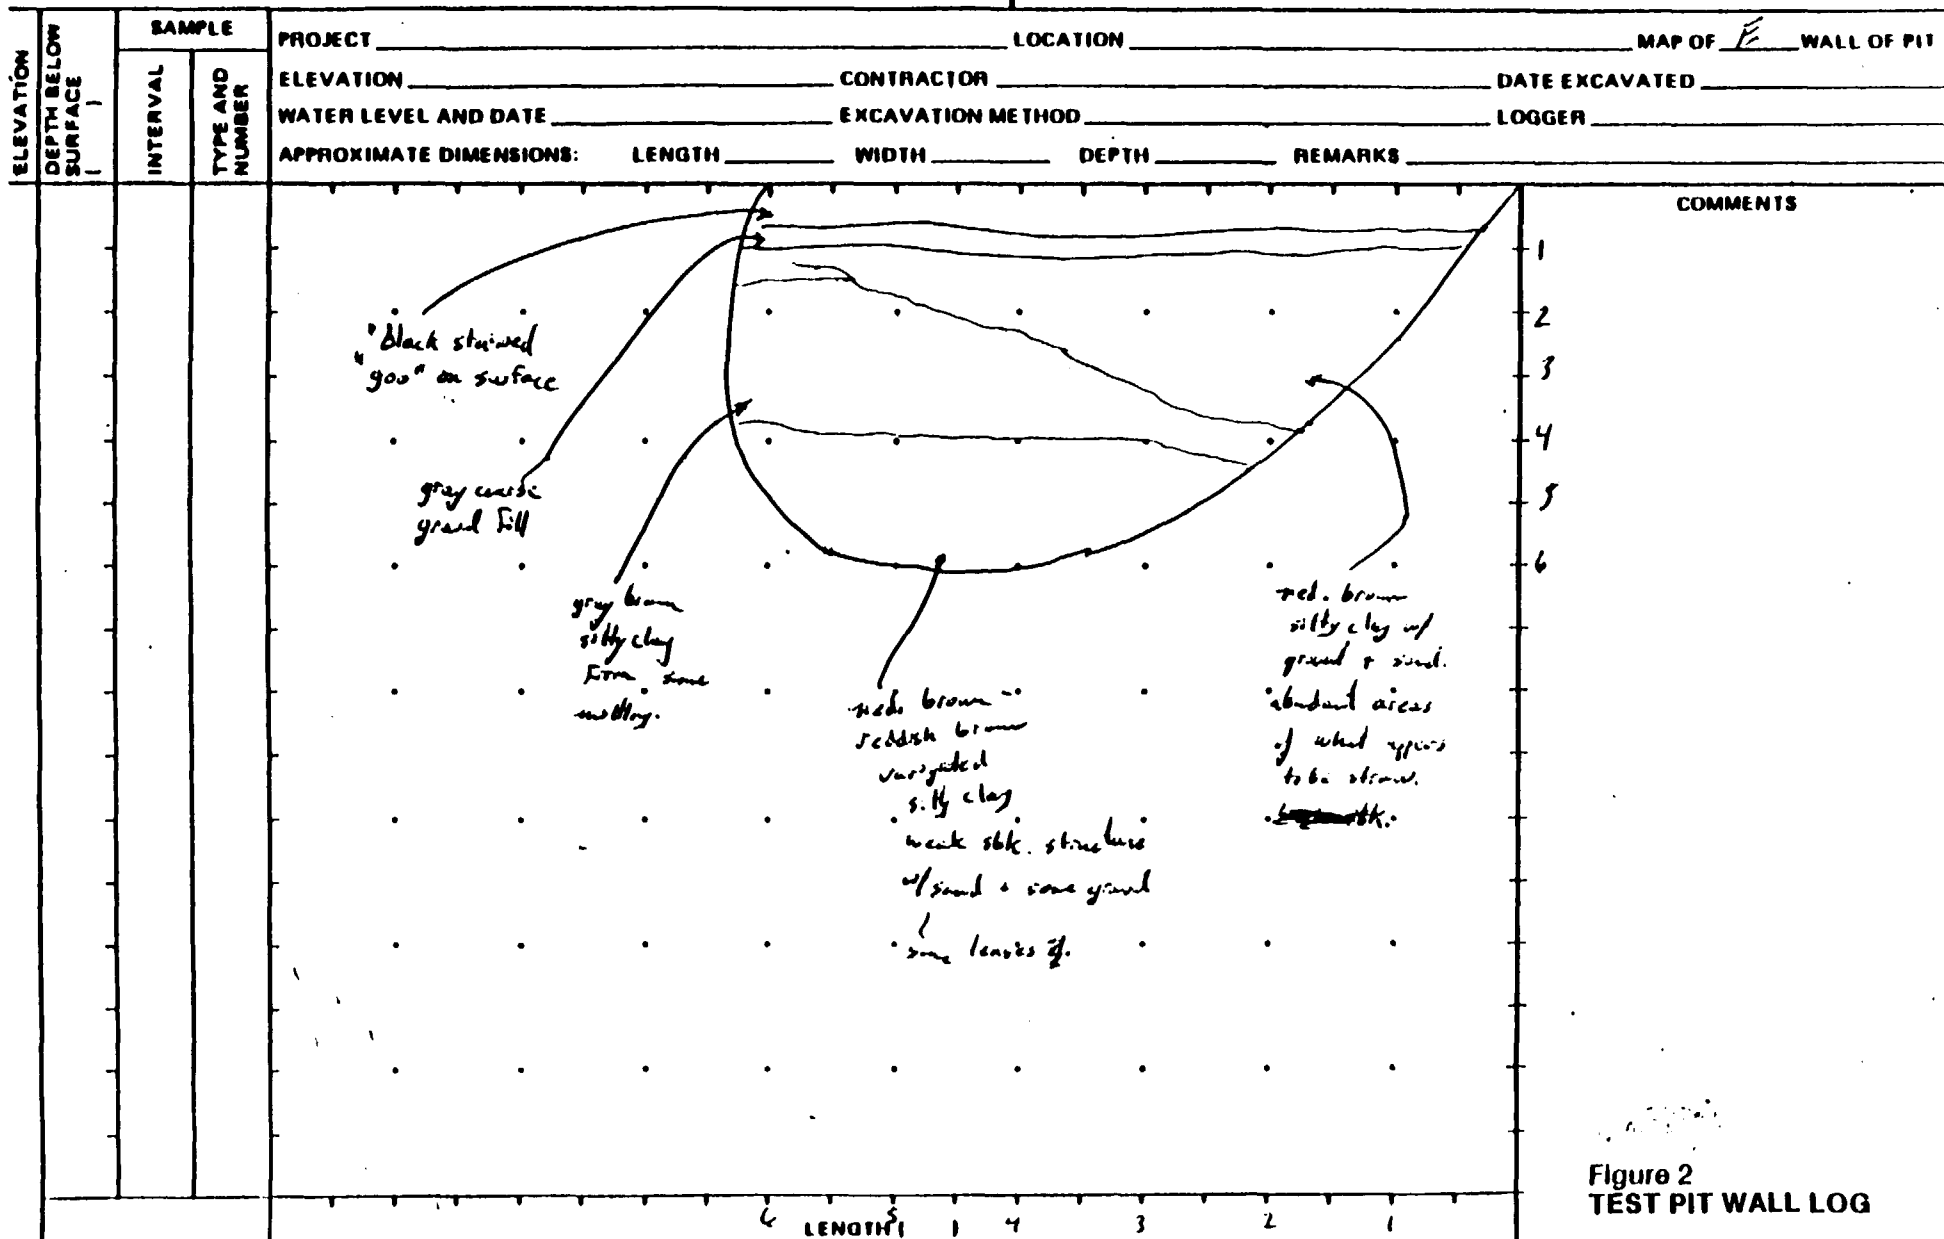 ELEVATION
DEPTH BELOW
SURFACE
SAMPLE
INTERVAL
TYPE AND
NUMBER
PROJECT LOCATION MAP OF E WALL OF PIT
ELEVATION CONTRACTOR DATE EXCAVATED
WATER LEVEL AND DATE EXCAVATION METHOD LOGGER
APPROXIMATE DIMENSIONS: LENGTH WIDTH DEPTH REMARKS
COMMENTS
1
2
3
4
5
6
"black stained
"goo" on surface
gray coarse
gravel fill
gray brown
silty clay
firm some
mottling.
med. brown -
reddish brown
variegated
silty clay
weak sbk. structure
w/ sand + some gravel
some leaves
med. brown
silty clay w/
gravel + sand.
abundant areas
of what appears
to be straw.
6 5 4 3 2 1
LENGTH
Figure 2
TEST PIT WALL LOG